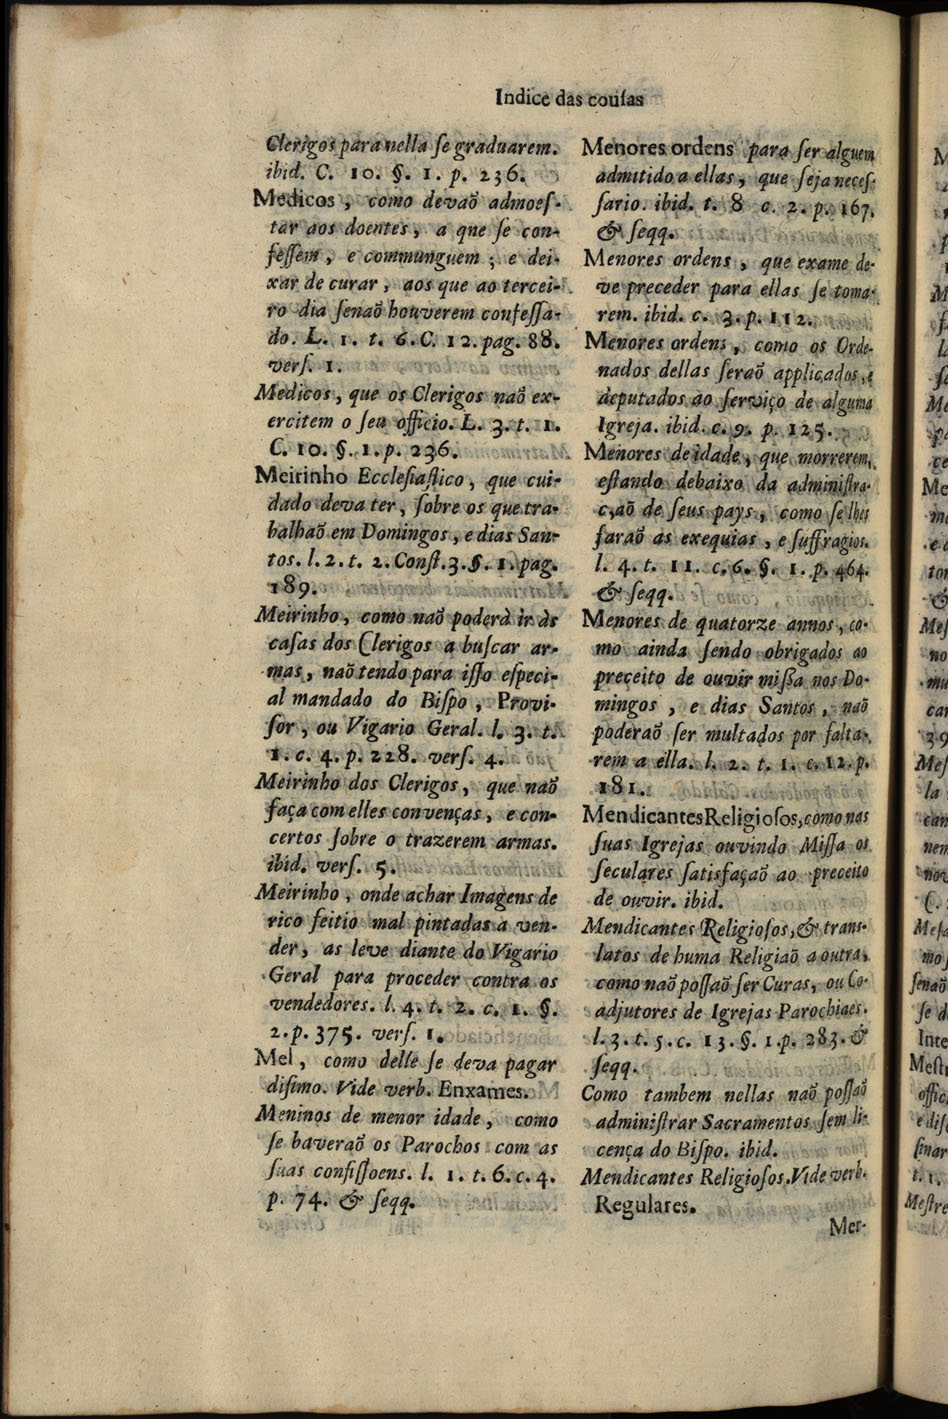 Indice das couſas
Clerigos para nella ſe graduarem.
ibid. C. 10. §. 1. p. 236.
Medicos, como devaõ admoeſ-
tar aos doentes, a qne ſe con-
feſſem, e communguem; e dei-
xar de curar, aos que ao tercei-
ro dia ſenaõ houverem confeſſa-
do. L. 1. t. 6. C. 12. pag. 88.
verſ. 1.
Medicos, que os Clerigos naõ ex-
ercitem o ſeu officio. L. 3. t. 1.
C. 10. §. 1. p. 236.
Meirinho Eccleſiaſtico, que cui-
dado deva ter, ſobre os que tra-
balhaõ em Domingos, e dias San-
tos. l. 2. t. 2. Conſt. 3. §. 1. pag.
189.
Meirinho, como naõ poderà ir às
caſas dos Clerigos a buſcar ar-
mas, naõ tendo para iſſo eſpeci-
al mandado do Biſpo, Provi-
ſor, ou Vigario Geral. l. 3. t.
1. c. 4. p. 228. verſ. 4.
Meirinho dos Clerigos, que naõ
faça com elles convenças, e con-
certos ſobre o trazerem armas.
ibid. verſ. 5.
Meirinho, onde achar Imagens de
rico feitio mal pintadas a ven-
der, as leve diante do Vigario
Geral para proceder contra os
vendedores. l. 4. t. 2. c. 1. §.
2. p. 375. verſ. 1.
Mel, como delle ſe deva pagar
diſimo. Vide verb. Enxames.
Meninos de menor idade, como
ſe haveraõ os Parochos com as
ſuas confiſſoens. l. 1. t. 6. c. 4.
p. 74. & ſeqq.
Menores ordens para ſer alguem
admitido a ellas, que ſeja neceſ-
ſario. ibid. t. 8 c. 2. p. 167.
& ſeqq.
Menores ordens, que exame de-
ve preceder para ellas ſe toma-
rem. ibid. c. 3. p. 112.
Menores ordens, como os Orde-
nados dellas ſeraõ applicados, e
deputados ao ſerviço de alguma
Igreja. ibid. c. 9. p. 125.
Menores de idade, que morrerem,
eſtando debaixo da adminiſtra-
c,aõ de ſeus pays, como ſe lhes
faraõ as exequias, e ſuffragios.
l. 4. t. 11. c. 6. §. 1. p. 464.
& ſeqq.
Menores de quatorze annos, co-
mo ainda ſendo obrigados ao
preceito de ouvir miſſa nos Do-
mingos, e dias Santos, naõ
poderaõ ſer multados por falta-
rem a ella. l. 2. t. 1. c. 12. p.
181.
Mendicantes Religioſos, como nas
ſuas Igrejas ouvindo Miſſa os
ſeculares ſatisfaçaõ ao preceito
de ouvir. ibid.
Mendicantes Religioſos, & trans-
latos de huma Religiaõ a outra,
como naõ poſſaõ ſer Curas, ou Co-
adjutores de Igrejas Parochiaes.
l. 3. t. 5. c. 13. §. 1. p. 283. &
ſeqq.
Como tambem nellas naõ poſſaõ
adminiſtrar Sacramentos ſem li-
cença do Biſpo. ibid.
Mendicantes Religioſos. Vide verb.
Regulares.
Mer-